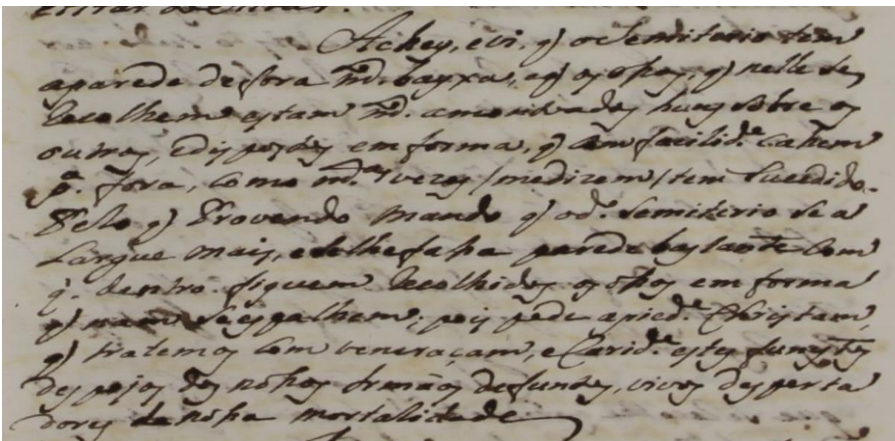 Achey, e vi, q̃ o Semiterio tem
a parede de fora m.to bayxa, e q̃ os ossos, q̃ nelle se
recolhem estam m.to amontoados huns sobre os
outros, e dispostos em forma, q̃ com facilid.e cahem
p.a fora, como m.tas vezes /me dizem/ tem sucedido.
Pelo q̃ Provendo Mando q̃ o d.o Semiterio se a
largue mais, e se lhe faça parede bastante com
q̃ dentro fiquem recolhidos os ossos em forma
q̃ nam se espalhem; pois pede a pied.e Christam,
q̃ tratemos com veneraçam, e Carid.e estes funestos
despojos dos nossos Irmãos defuntos, vivos desperta
dores da nossa mortalidade.